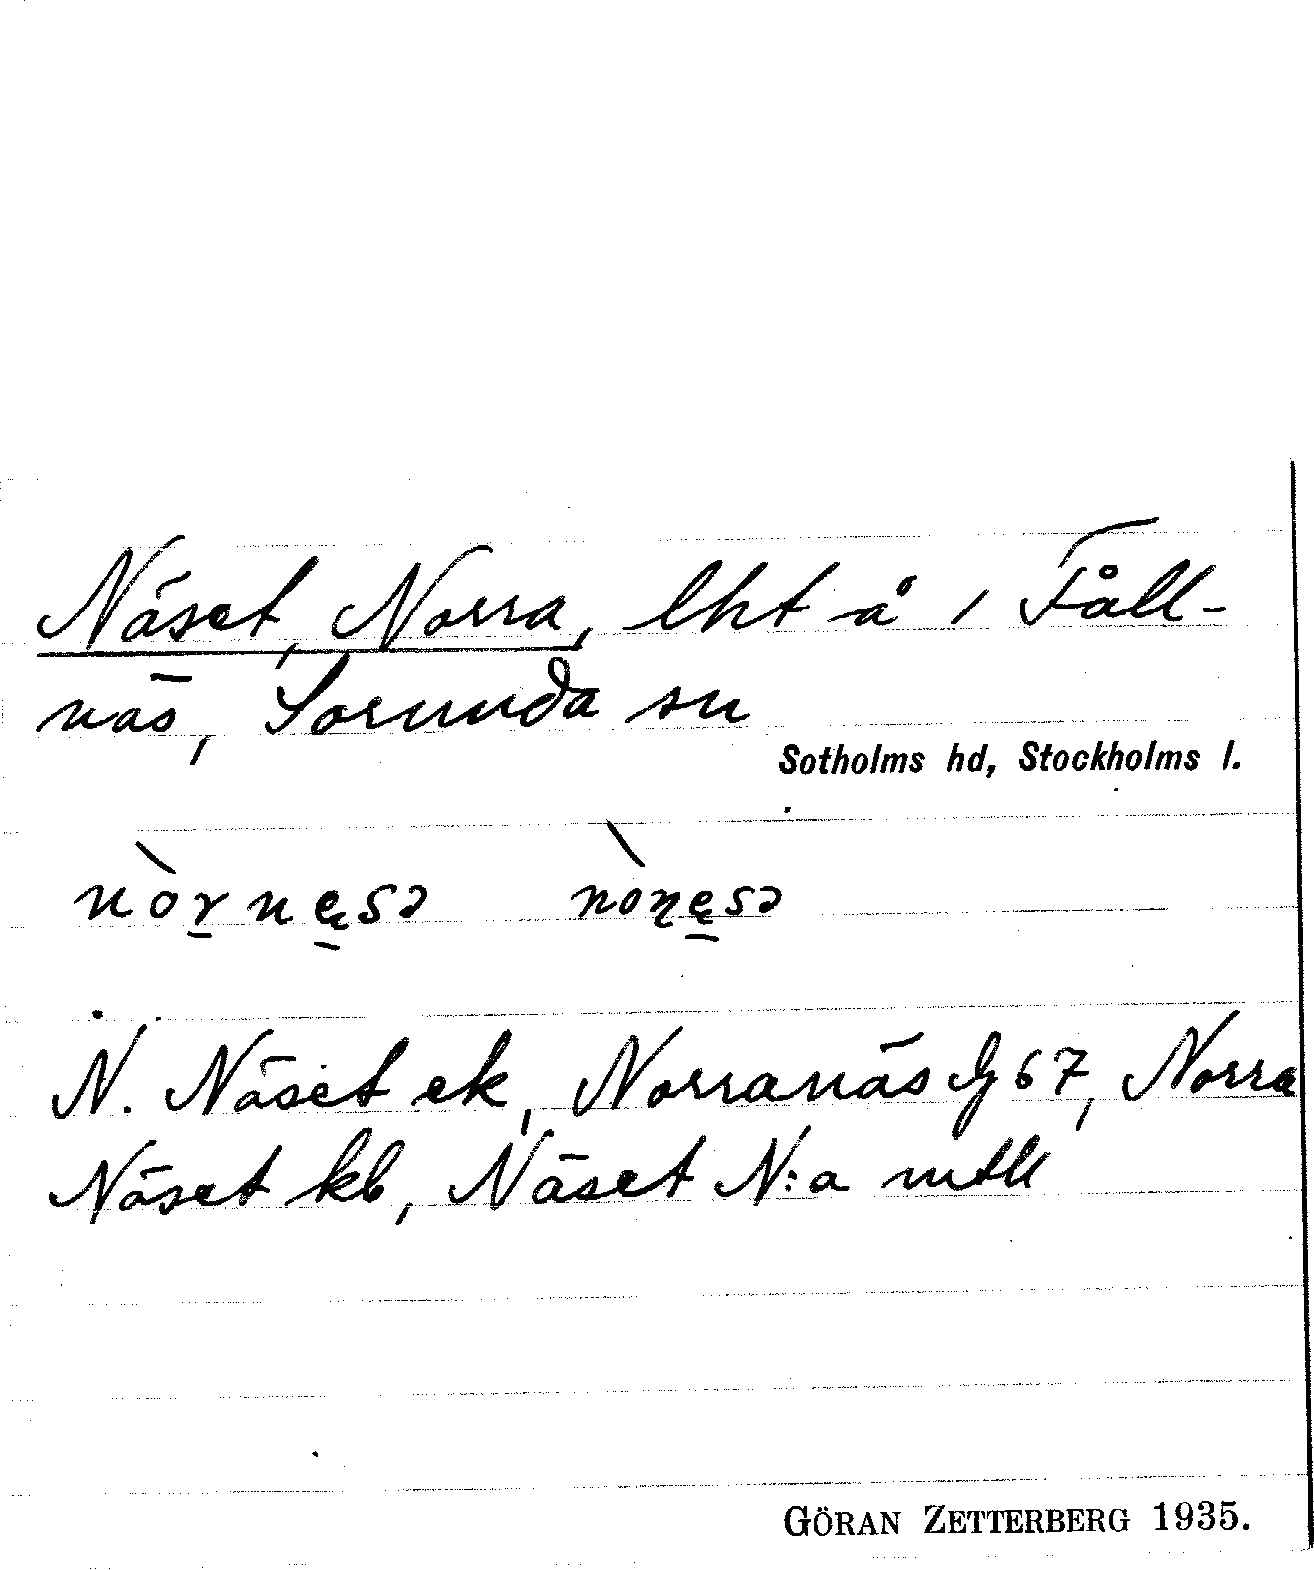 Näset, Norra, lht å 1 Fåll-
näs, Sorunda sn
Sotholms hd, Stockholms l.
nòrnęsə nòɳęsə
N. Näset ek, Norranäs 67, Norra
Näset kb, Näset N:a mtll
GÖRAN ZETTERBERG 1935.